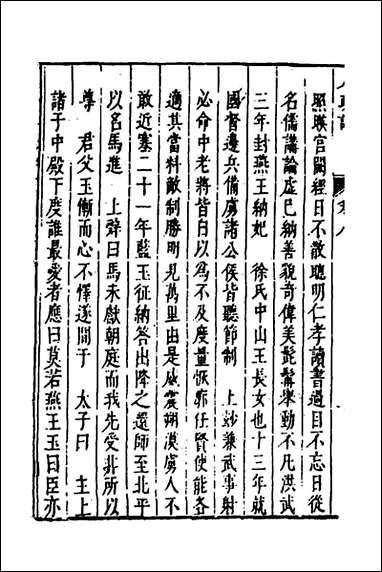 照暎宫闕經日不散聰明仁孝讀書過目不忘日從
名儒講論虛己納善貌奇偉美髭髯舉動不凡洪武
三年封燕王納妃　徐氏中山王長女也十三年就
國督邊兵備虜諸公侯皆聽節制　上妙兼武事射
必命中老將皆自以為不及度量恢廓任賢使能各
適其當料敵制勝明見萬里由是威震朔漠虜人不
敢近塞二十一年藍玉征納荅出降之還師至北平
以名馬進　上辭曰馬未獻朝庭而我先受非所以
尊　君父玉慚而心不懌遂間于　太子曰　主上
諸子中殿下度誰最愛者應曰莫若燕王玉曰臣亦